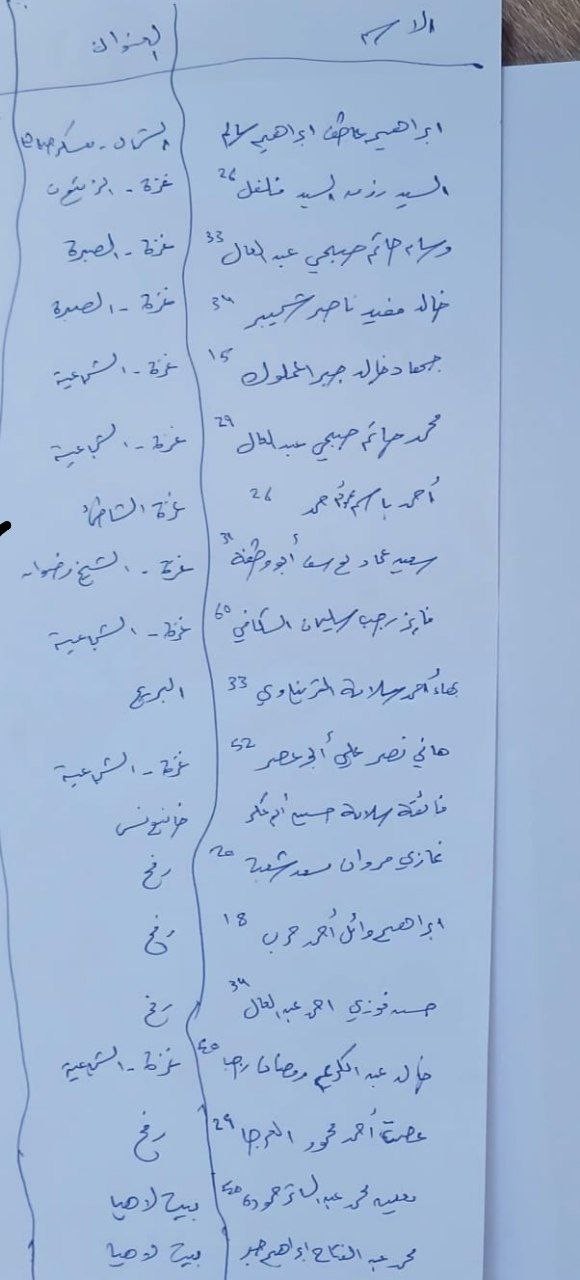 الاسم العنوان
ابراهيم عاطف ابراهيم سالم الشمال - معسكر
السيد رزق السيد فلفل 26 غزة - الزيتون
وسام حاتم صبحي عبد العال 33 غزة - الصبرة
خالد مفيد ناصر شحيبر 34 غزة - الصبرة
جهاد خالد جبر المملوك 15 غزة - الشجاعية
محمد حاتم صبحي عبد العال 29 غزة - الشجاعية
أحمد باسم أحمد 26 غزة الشاطئ
سعيد عماد أبو وطفة 31 غزة - الشيخ رضوان
فايز رجب سليمان السكافي 60 غزة - الشجاعية
بهاء أحمد سلامة 33 البريج
هاني نصر علي أبو عصر 52 غزة - الشجاعية
فائقة سلامة خانيونس
غازي مروان سعد شعبة 20 رفح
ابراهيم وائل أحمد حرب 18 رفح
حسن فوزي احمد عبد العال 34 رفح
خالد عبد الكريم رمضان غزة - الشجاعية
أحمد محمود 29 رفح
محمد عبد الساتر حمودة بيت لاهيا
محمد عبد الفتاح ابراهيم جبر بيت لاهيا